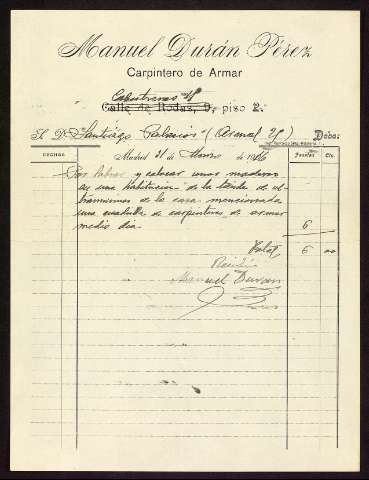 Manuel Durán Pérez
Carpintero de Armar
Calle de Rodas, 9, piso 2.º
S. D. Santiago Palacios (Arenal 21) Debe:
FECHAS Madrid 31 de Marzo de 19 Pesetas Cts.
Por labrar y colocar unas maderas
en una habitación de la tienda de ul-
tramarinos de la casa mencionada
una cuadrilla de carpinteros de armar
medio dia 6
Total 6 00
Recibí
Manuel Duran